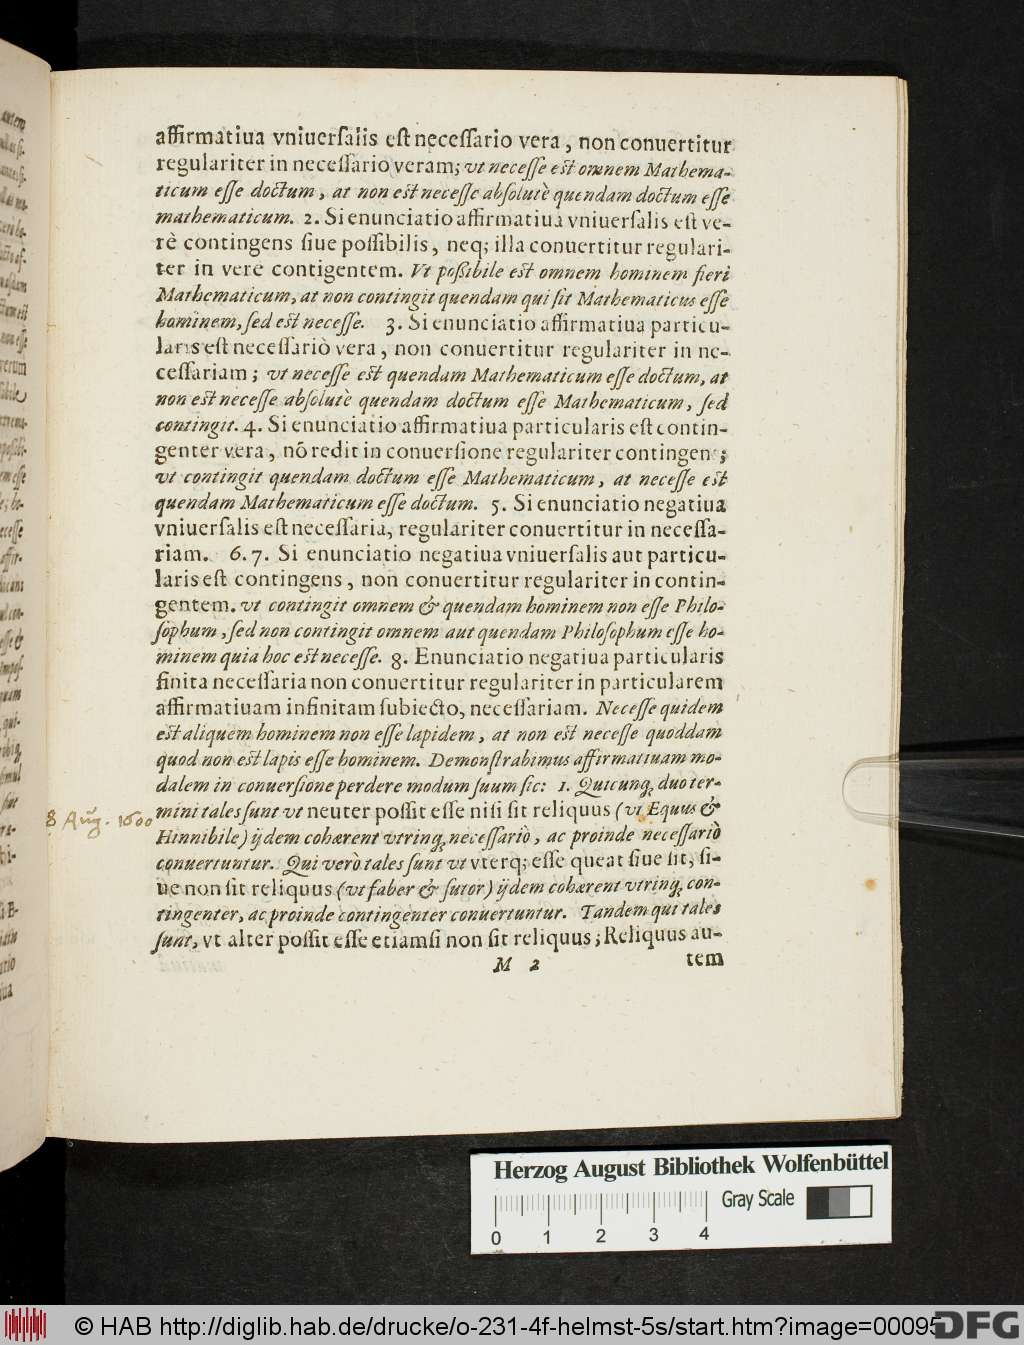 affirmatiua vniuerſalis eſt neceſſario vera, non conuertitur
regulariter in neceſſario veram; vt neceſſe eſt omnem Mathema-
ticum eſſe doctum, at non eſt neceſſe abſolutè quendam doctum eſſe
mathematicum. 2. Si enunciatio affirmatiua vniuerſalis eſt ve-
rè contingens ſiue poſſibilis, neq; illa conuertitur regulari-
ter in vere contigentem. Vt poßibile eſt omnem hominem fieri
Mathematicum, at non contingit quendam qui ſit Mathematicus eſſe
hominem, ſed eſt neceſſe. 3. Si enunciatio affirmatiua particu-
laris eſt neceſſariò vera, non conuertitur regulariter in ne-
ceſſariam; vt neceſſe eſt quendam Mathematicum eſſe doctum, at
non eſt neceſſe abſolutè quendam doctum eſſe Mathematicum, ſed
contingit. 4. Si enunciatio affirmatiua particularis eſt contin-
genter vera, nõ redit in conuerſione regulariter contingens;
vt contingit quendam doctum eſſe Mathematicum, at neceſſe eſt
quendam Mathematicum eſſe doctum. 5. Si enunciatio negatiua
vniuerſalis eſt neceſſaria, regulariter conuertitur in neceſſa-
riam. 6. 7. Si enunciatio negatiua vniuerſalis aut particu-
laris eſt contingens, non conuertitur regulariter in contin-
gentem. vt contingit omnem & quendam hominem non eſſe Philo-
ſophum, ſed non contingit omnem aut quendam Philoſophum eſſe ho-
minem quia hoc eſt neceſſe. 8. Enunciatio negatiua particularis
finita neceſſaria non conuertitur regulariter in particularem
affirmatiuam infinitam ſubiecto, neceſſariam. Neceſſe quidem
eſt aliquem hominem non eſſe lapidem, at non eſt neceſſe quoddam
quod non eſt lapis eſſe hominem. Demonſtrabimus affirmatiuam mo-
dalem in conuerſione perdere modum ſuum ſic: 1. Quicunq; duo ter-
mini tales ſunt vt neuter poſſit eſſe niſi ſit reliquus (vt Equus &
8 Aug. 1600
Hinnibile) ijdem cohærent vtrinq; neceſſariò, ac proinde neceſſariò
conuertuntur. Qui verò tales ſunt vt vterq; eſſe queat ſiue ſit, ſi-
ue non ſit reliquus (vt faber & ſutor) ijdem cohærent vtrinq; con-
tingenter, ac proinde contingenter conuertuntur. Tandem qui tales
ſunt, vt alter poſſit eſſe etiamſi non ſit reliquus; Reliquus au-
M 2 tem
Herzog August Bibliothek Wolfenbüttel
Gray Scale
0 1 2 3 4
© HAB http://diglib.hab.de/drucke/o-231-4f-helmst-5s/start.htm?image=00095
DFG